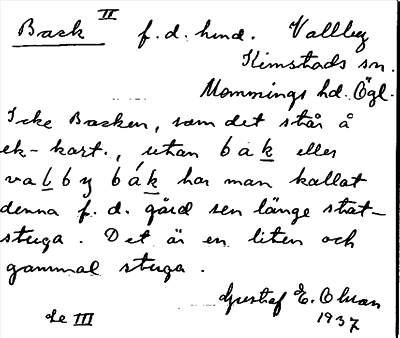 Back II f. d. hmd. Vallby
Kimstads sn.
Memmings hd. Ögl.
Icke Backen, som det står å
ek-kart., utan bak eller
valby bák har man kallat
denna f. d. gård sen länge stat-
stuga. Det är en liten och
gammal stuga.
Gustaf E. Olsson
1937
de III